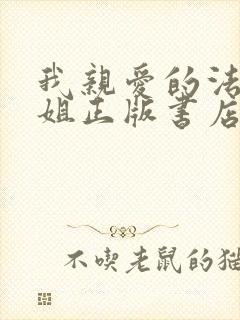 我親愛的法
姐正版書店
不喫老鼠的猫